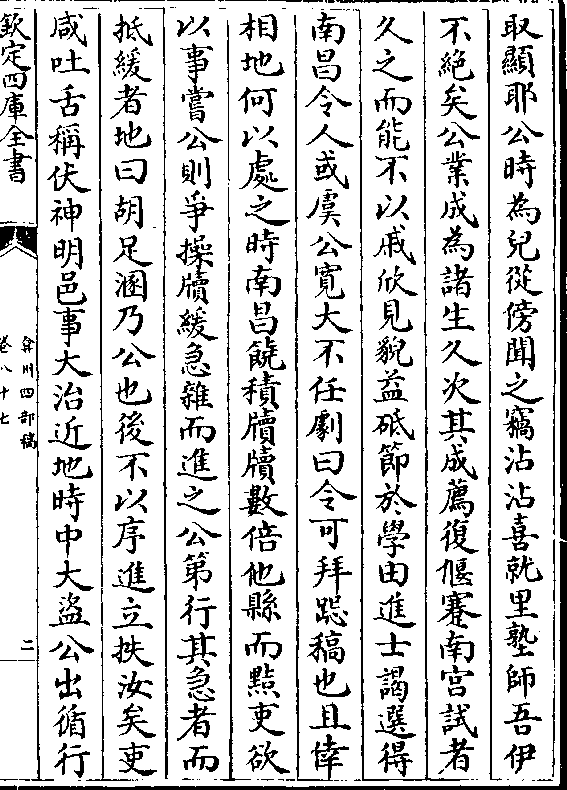 取顯耶公時為兒從傍聞之竊沾沾喜就里塾師吾伊
不絶矣公業成為諸生久次其成薦復偃蹇南宫試者
久之而能不以戚欣見貌益砥節於學由進士謁選得
南昌令人或虞公寛大不任劇曰令可拜跽稿也且倖
相地何以處之時南昌饒積牘牘數倍他縣而黠吏欲
以事嘗公則爭操牘緩急雜而進之公第行其急者而
抵緩者地曰胡足溷乃公也後不以序進立抶汝矣吏
咸吐舌稱伏神明邑事大治近地時中大盗公出循行
欽定四庫全書
弇州四部稿
卷八十七
二